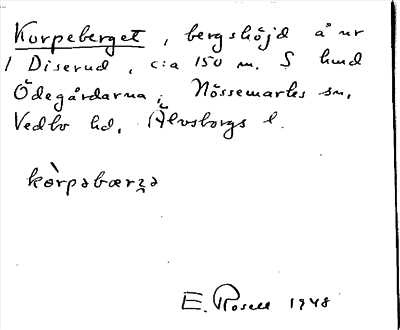 Korpeberget, bergshöjd å nr
1 Diserud, c:a 150 m. S
Ödegårdarna i Nössemarks sn,
Vedbo hd, Älvsborgs l.
kòrpəbærʒə
E. Rosell 1948